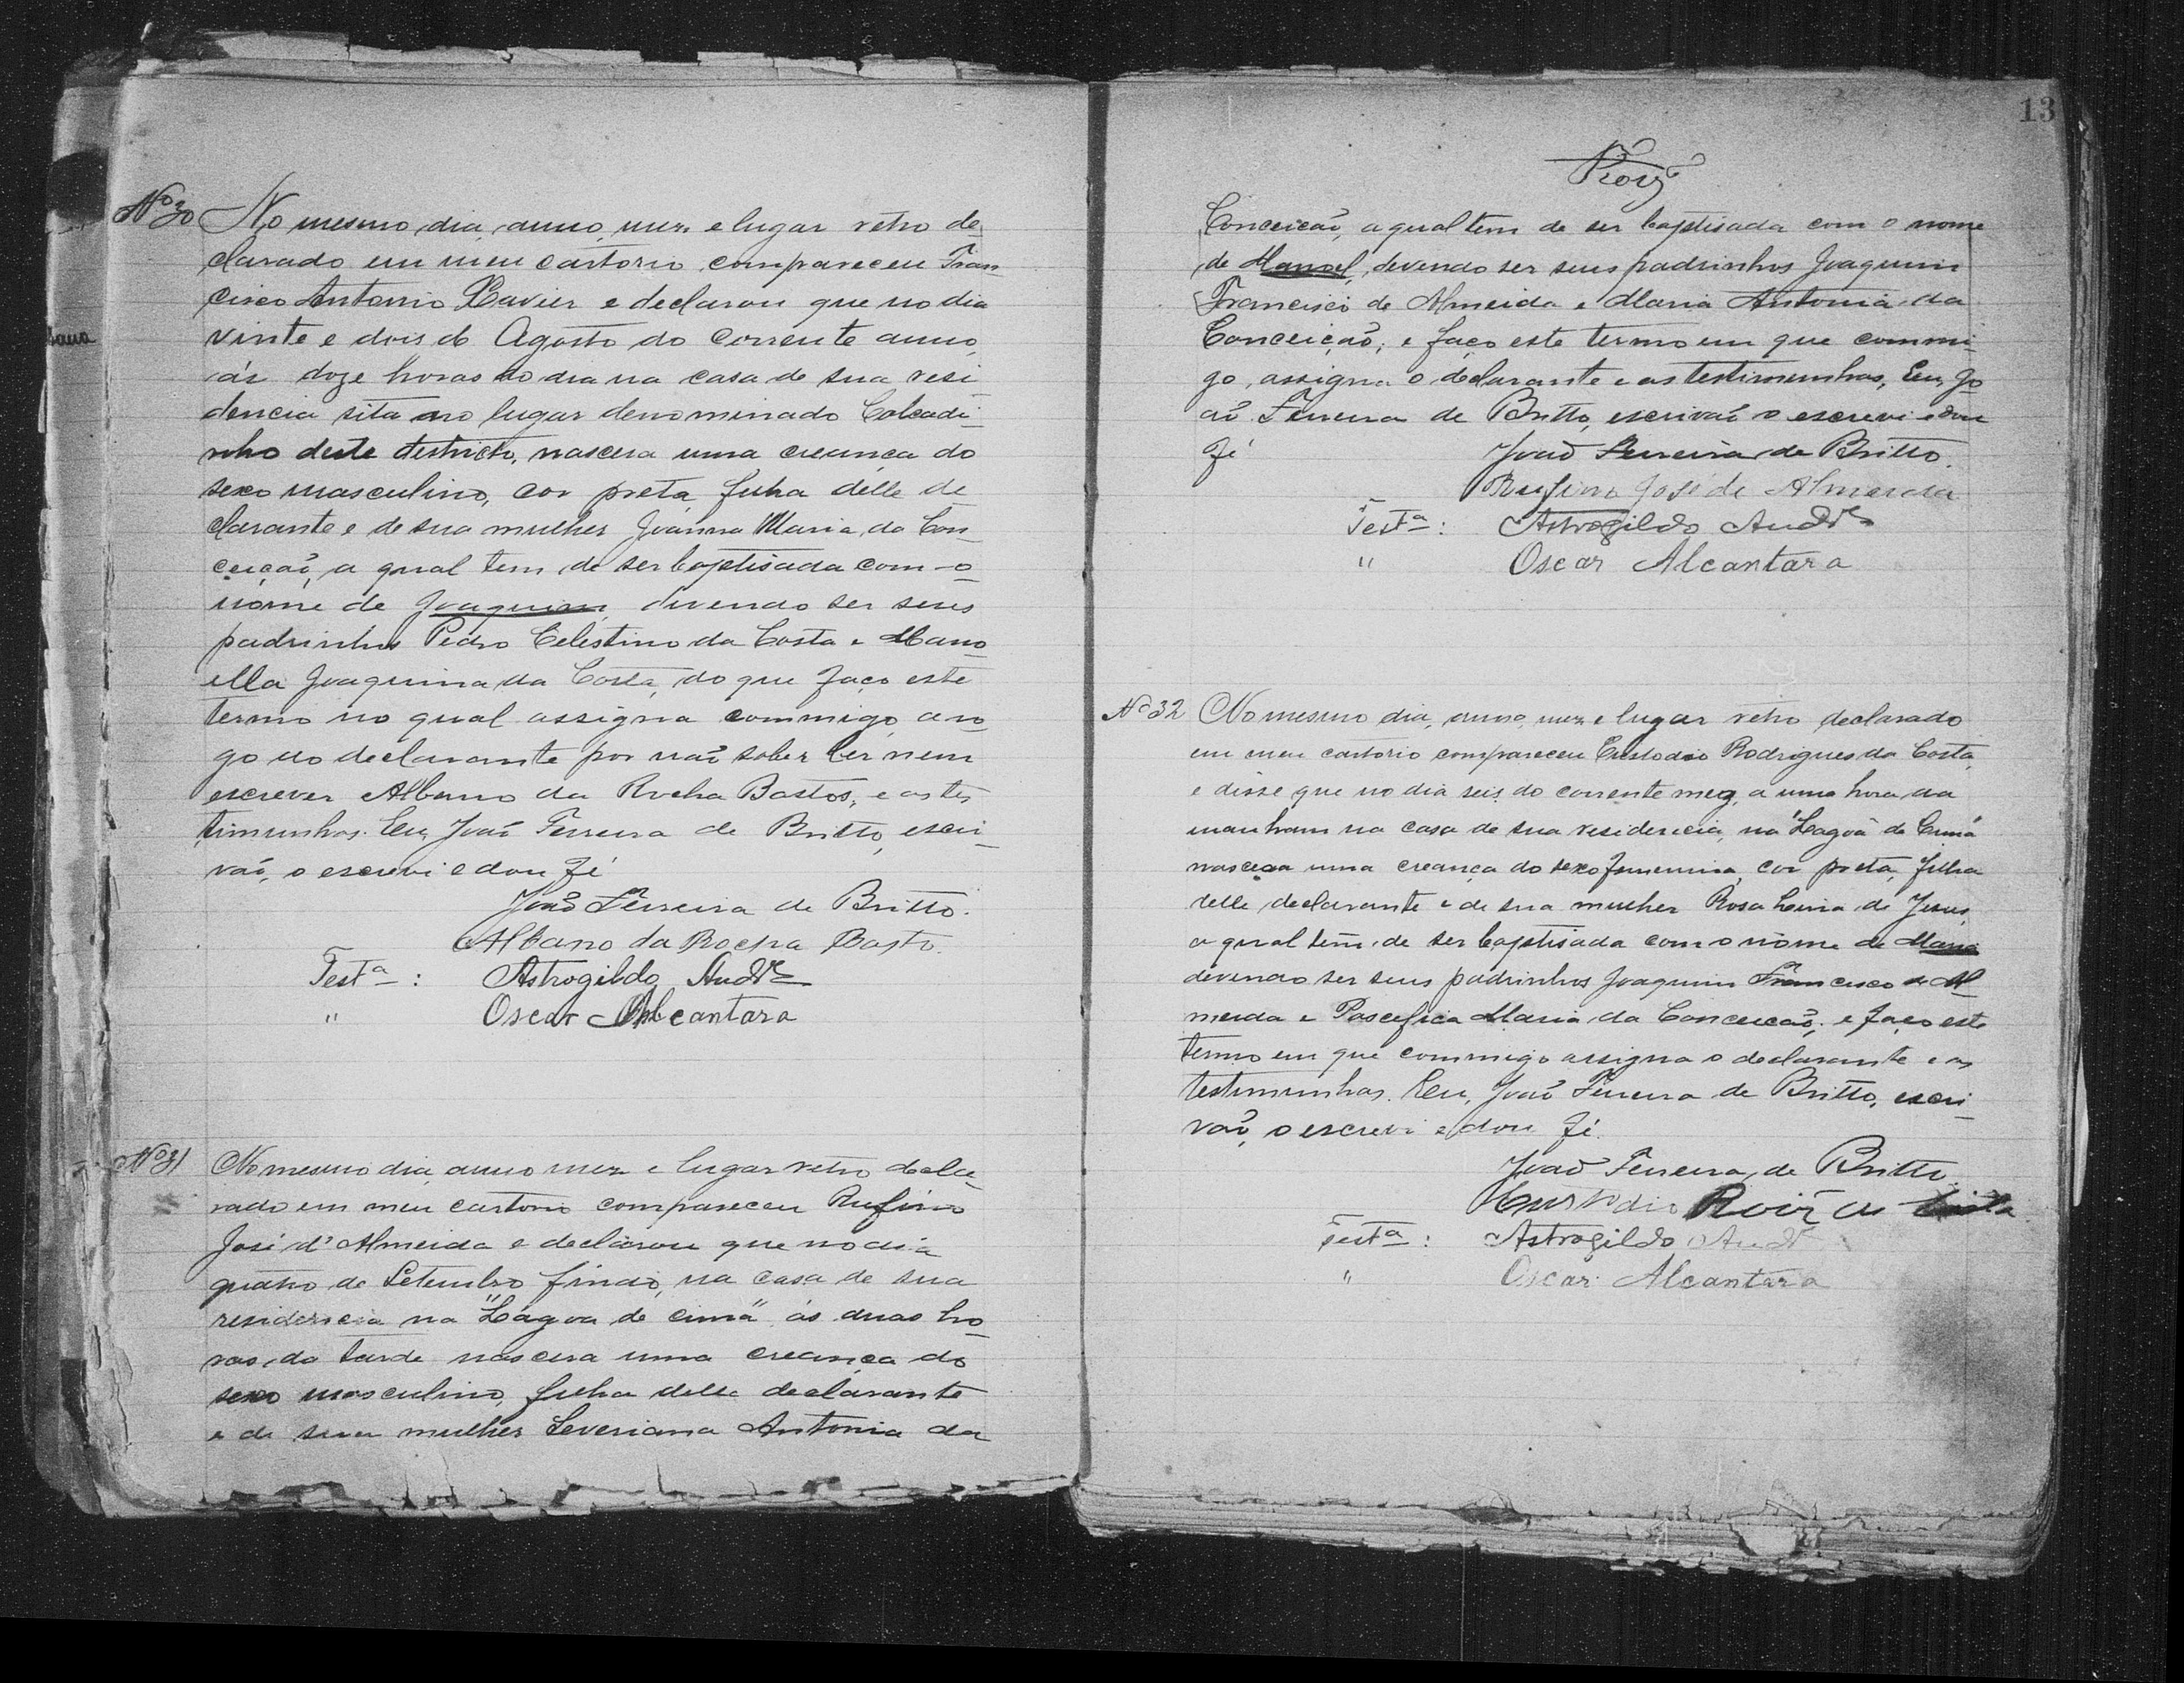 Nº 30 No mesmo dia, anno, mez e lugar retro de-
clarado em meu cartorio, compareceu Fran-
cisco Antonio Xavier e declarou que no dia
vinte e dois de Agosto do corrente anno,
ás doze horas do dia na casa de sua resi-
dencia sita no lugar denominado
deste destricto, nascera uma creança do
sexo masculino, cor preta, filha delle de-
clarante e de sua mulher Joanna Maria da Con-
ceição, a qual tem de ser baptisada com o
nome de Joaquim, devendo ser seus
padrinhos Pedro Celestino da Costa e Mano-
ella Joaquina da Costa, do que faço este
termo no qual assigna commigo, a ro-
go do declarante por não saber ler nem
escrever Albano da Rocha Bastos, e as tes-
timunhas. Eu, João Ferreira de Britto, escri-
vão, o escrevi e dou fé
João Ferreira de Britto.
Albano da Rocha Basto.
Testª: Astrogildo
" Oscar Alcantara
Nº 31 No mesmo dia, anno mez e lugar retro decla-
rado em meu cartorio compareceu Rufino
José d'Almeida e declarou que no dia
quatro de Setembro findo, na casa de sua
residencia na "Lagoa de cima" ás duas ho-
ras da tarde nascera uma creança do
sexo masculino, filha delle declarante
e de sua mulher Severiana Antonia da
13
Conceicão, a qual tem de ser baptisada com o nome
de Manoel, devendo ser seus padrinhos Joaquim
Francisco de Almeida e Maria Antonia da
Conceição; e faço este termo em que commi-
go, assigna o declarante e as testimunhas, Eu, Jo-
ão Ferreira de Britto, escrivão o escrevi e dou
fé João Ferreira de Britto.
Rufino José de Almeida
Testª: Astrogildo
" Oscar Alcantara
Nº 32 No mesmo dia, anno, mez e lugar retro declarado
em meu cartorio compareceu Custodio Rodrigues da Costa,
e disse que no dia seis do corrente mez, a uma hora da
manham na casa de sua residencia, na "Lagoa de Cima"
nascera uma creança do sexo femenino, cor preta, filha
delle declarante e de sua mulher Rosa de Jesus,
a qual tem de ser baptisada com o nome de Maria
devendo ser seus padrinhos Joaquim Francisco de Al-
meida e Maria da Conceicão; e faço este
termo em que commigo assigna o declarante e as
testimunhas. Eu, João Ferreira de Britto, escri-
vão, o escrevi e dou fé.
João Ferreira de Britto.
Custodio
Testª: Astrogildo
" Oscar Alcantara